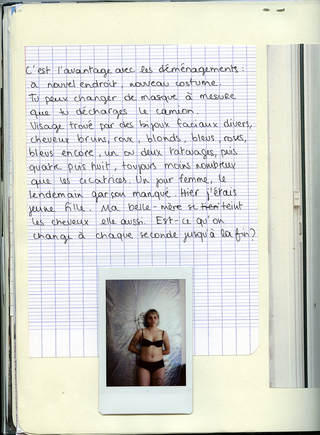 C'est l'avantage avec les déménagements :
à nouvel endroit, nouveau costume.
Tu peux changer de masque à mesure
que tu décharges le camion.
Visage troué par des bijoux faciaux divers,
cheveux bruns, roux, blonds, bleus, roses,
bleus encore, un ou deux tatouages, puis
quatre puis huit, toujours moins nombreux
que les cicatrices. Un jour femme, le
lendemain garçon manqué. Hier j'étais
jeune fille. Ma belle-mère se teint
les cheveux elle aussi. Est-ce qu'on
change à chaque seconde jusqu'à la fin?